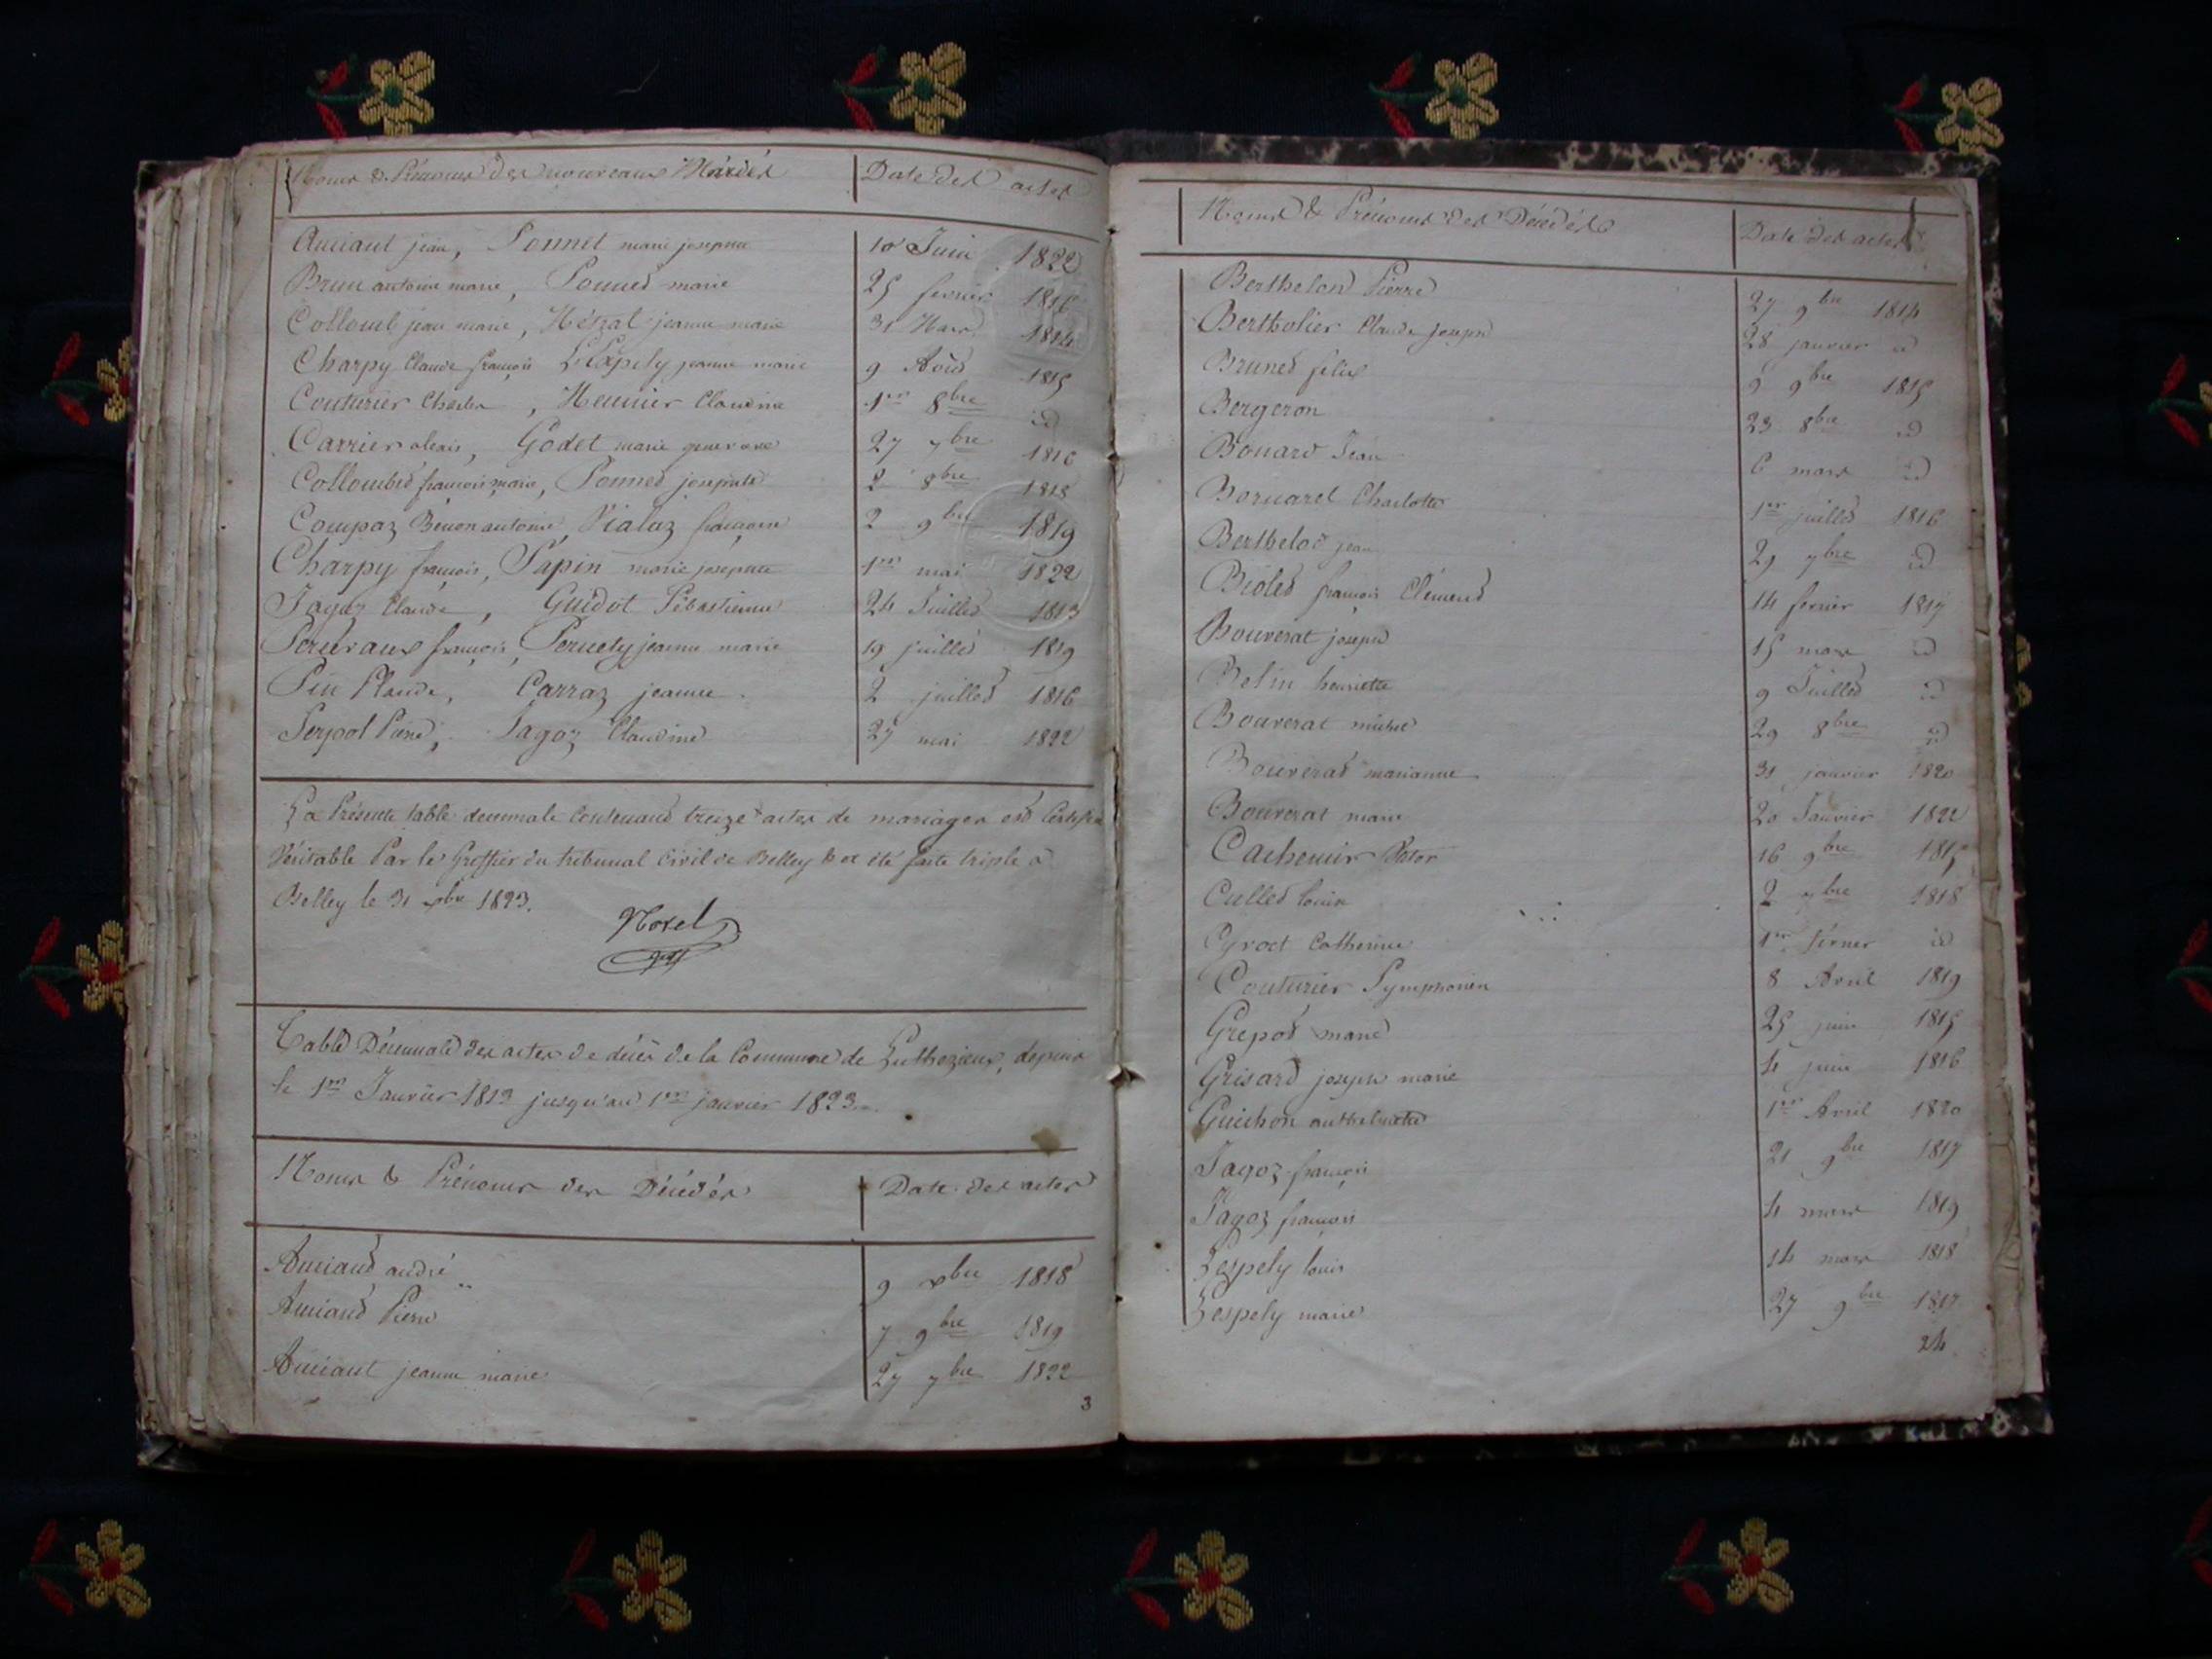 Noms & Prénoms des nouveaux Mariés Date des actes
Amiaut jean, Ponnet marie josephte 10 Juin 1822
Brun antoine marie, Ponned marie 25 fevrier 1816
Colloub jean marie, jeanne marie 31 Mars 1814
Charpy Claude françois L'Espely jeanne marie 9 Août 1815
Couturier Charles, Meunier Claudine 1er 8bre id
Carrier alexis, Godet marie 27 7bre 1816
Collombed françois marie, Ponned josephte 2 8bre 1818
Compaz Benon antoine, Vialaz françoise 2 9bre 1819
Charpy françois, Papin marie josephte 1er mai 1822
Jagoz Claude, Guidot Sébastienne 24 Juilled 1813
françois, Pernety jeanne marie 19 juilled 1819
Pin Claude, Carraz jeanne 2 juilled 1816
Serpol Pierre, Jagoz Claudine 27 mai 1822
La Présente table decennale Contenand treize actes de mariages est Certifiée
Véritable Par le Greffier du tribunal Civil de Belley & a été faite triple a
Belley le 31 xbre 1823.
Morel
Table Décennale des actes de décès de la Commune de Luthezieux, depuis
le 1er Janvier 1813 jusqu'au 1er janvier 1823
Noms & Prénoms des Décédés Date des actes
Amiaud andré 9 xbre 1818
Amiaud Pierre 7 9bre 1819
Amiaut jeanne marie 27 7bre 1822
3
Noms & Prénoms des Décédés Date des actes
Berthelod Pierre 27 9bre 1814
Bertholier Claude joseph 28 janvier id
Bruned félix 9 9bre 1815
Bergeron 23 8bre id
Bouard Jean 6 mars id
Bornarel Charlotte 1er juilled 1816
Berthelod jean 29 7bre id
Bioled françois Clémend 14 fevrier 1817
Bouverat joseph 15 mars id
Belin henriette 9 Juilled id
Bouverat michel 29 8bre id
Bouverad marianne 31 janvier 1820
Bouverat marie 20 Janvier 1822
Cachemir Victor 16 9bre 1815
Culled louis 2 7bre 1818
Cyroct Catherine 1er février id
Couturier Symphorien 8 Avril 1819
Grepod marie 25 juin 1815
Grisard joseph marie 4 juin 1816
Guichon anthelmette 1er Avril 1820
Jagoz françois 21 9bre 1817
Jagoz françois 4 mars 1819
Lespely louis 14 mars 1818
Lespely marie 27 9bre 1817
24